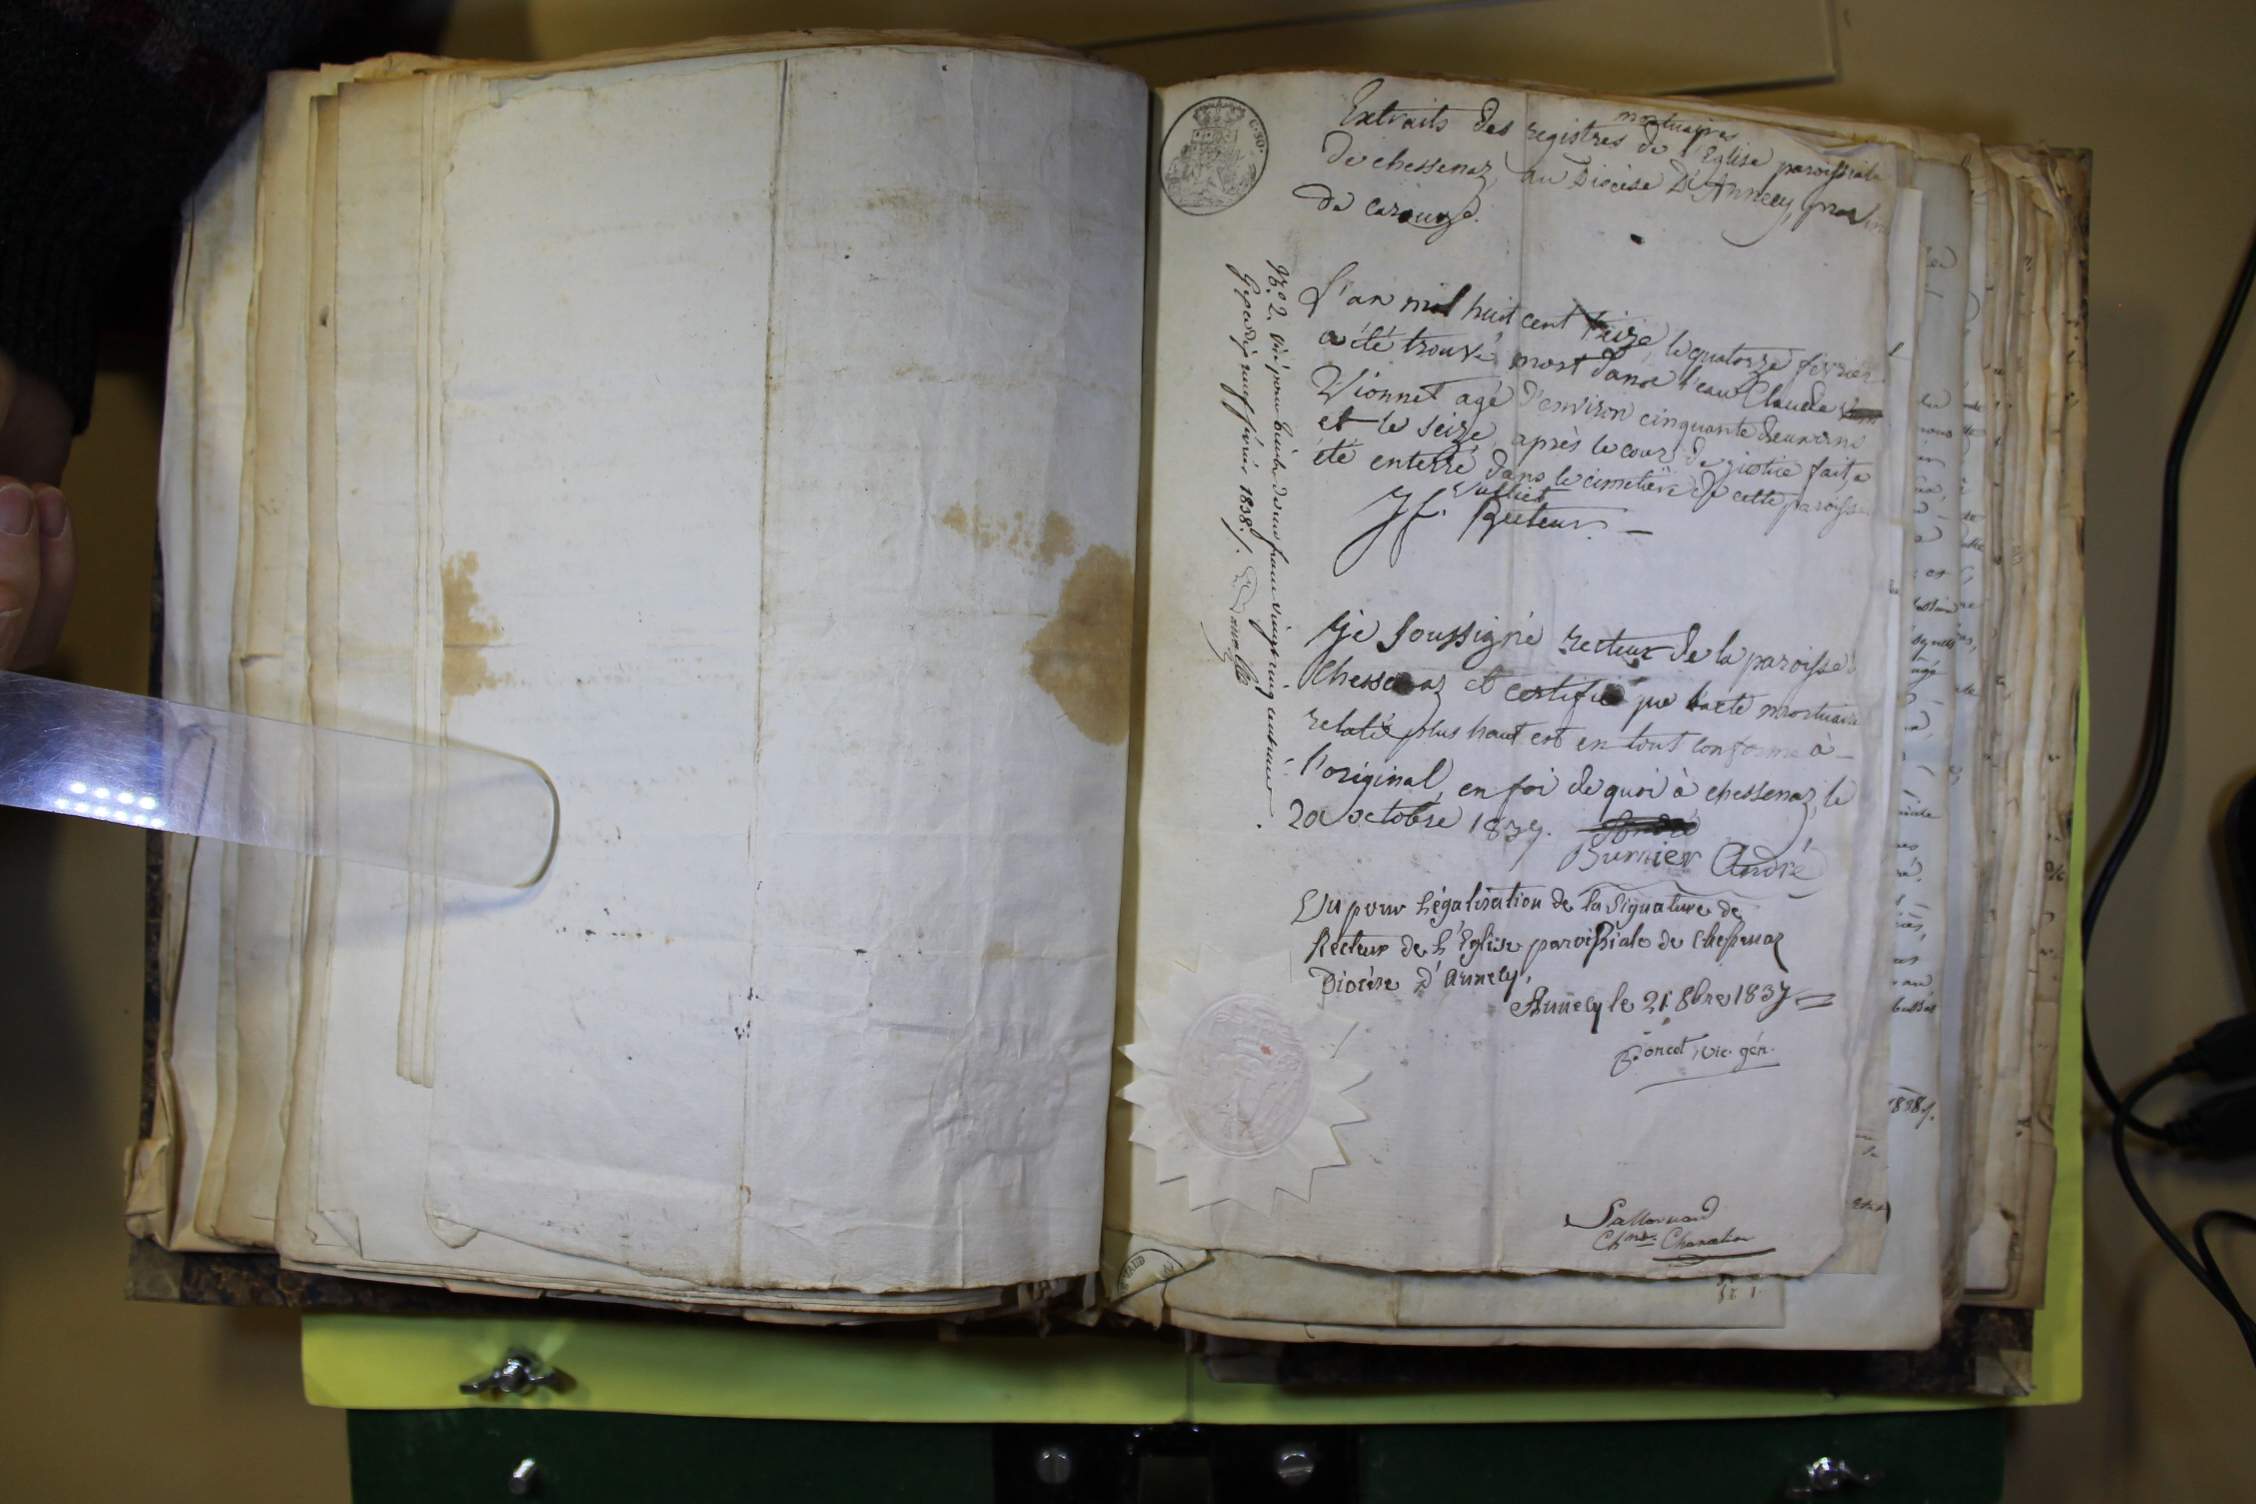 C. 50.
mortuaires
Extraits des registres de l'Eglise paroissiale
de chessenaz, au Diocèse D'Annecy, provin
de carouge.
L'an mil huit cent seize, le quatorze fevrier
a été trouvé mort dans l'eau Claude
Vionnet agé d'environ cinquante deux ans
et le seize, après le cour de justice fait, a
été enterré dans le cimetière de cette paroisse
Vulliet
Recteur. —
Je soussigné recteur de la paroisse
Chessenaz et certifie que l'acte mortuaire
relaté plus haut est en tout conforme à —
l'original, en foi de quoi à chessenaz, le
20 octobre 1837.
Burnier André
Vu pour Légalisation de la Signature de
Recteur de L'Eglise paroissiale de Chessenaz
Diocèse d'Annecy,
Annecy le 21 8bre 1837
Poncet, vic. gén.
Chne. Chancelier
No. 2. Vu pour timbre deux francs vingt cinq centimes
neuf février 1838.
1838.